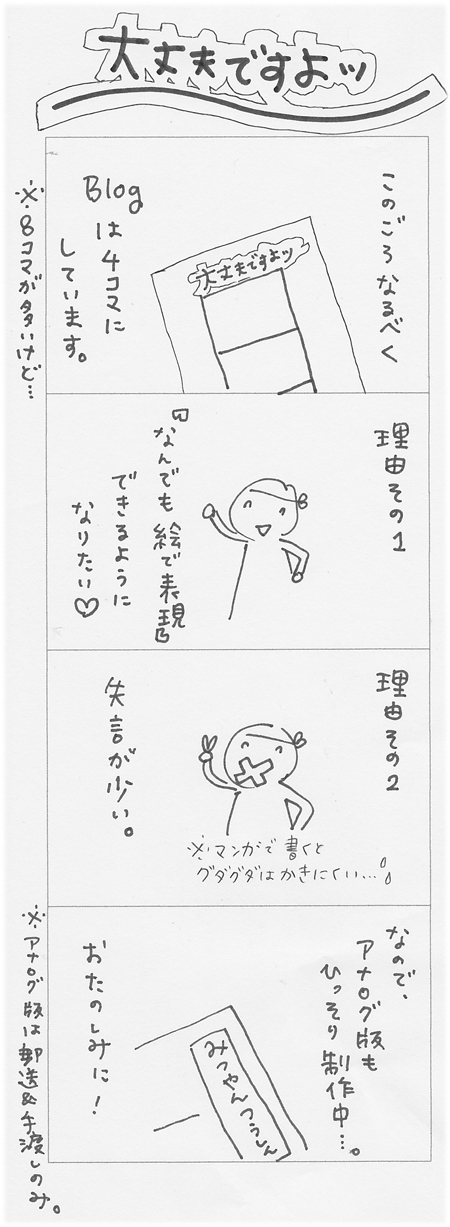 大丈夫ですよッ
このごろなるべく
Blog
は4コマに
しています。
大丈夫ですよッ
※8コマが多いけど…
理由その1
『なんでも絵で表現』
できるように
なりたい♡
理由その2
失言が少い。
※マンガで書くと
グダグダはかきにくい…
なので、
アナログ版も
ひっそり制作中…。
みつやんつうしん
おたのしみに！
※アナログ版は郵送&手渡しのみ。